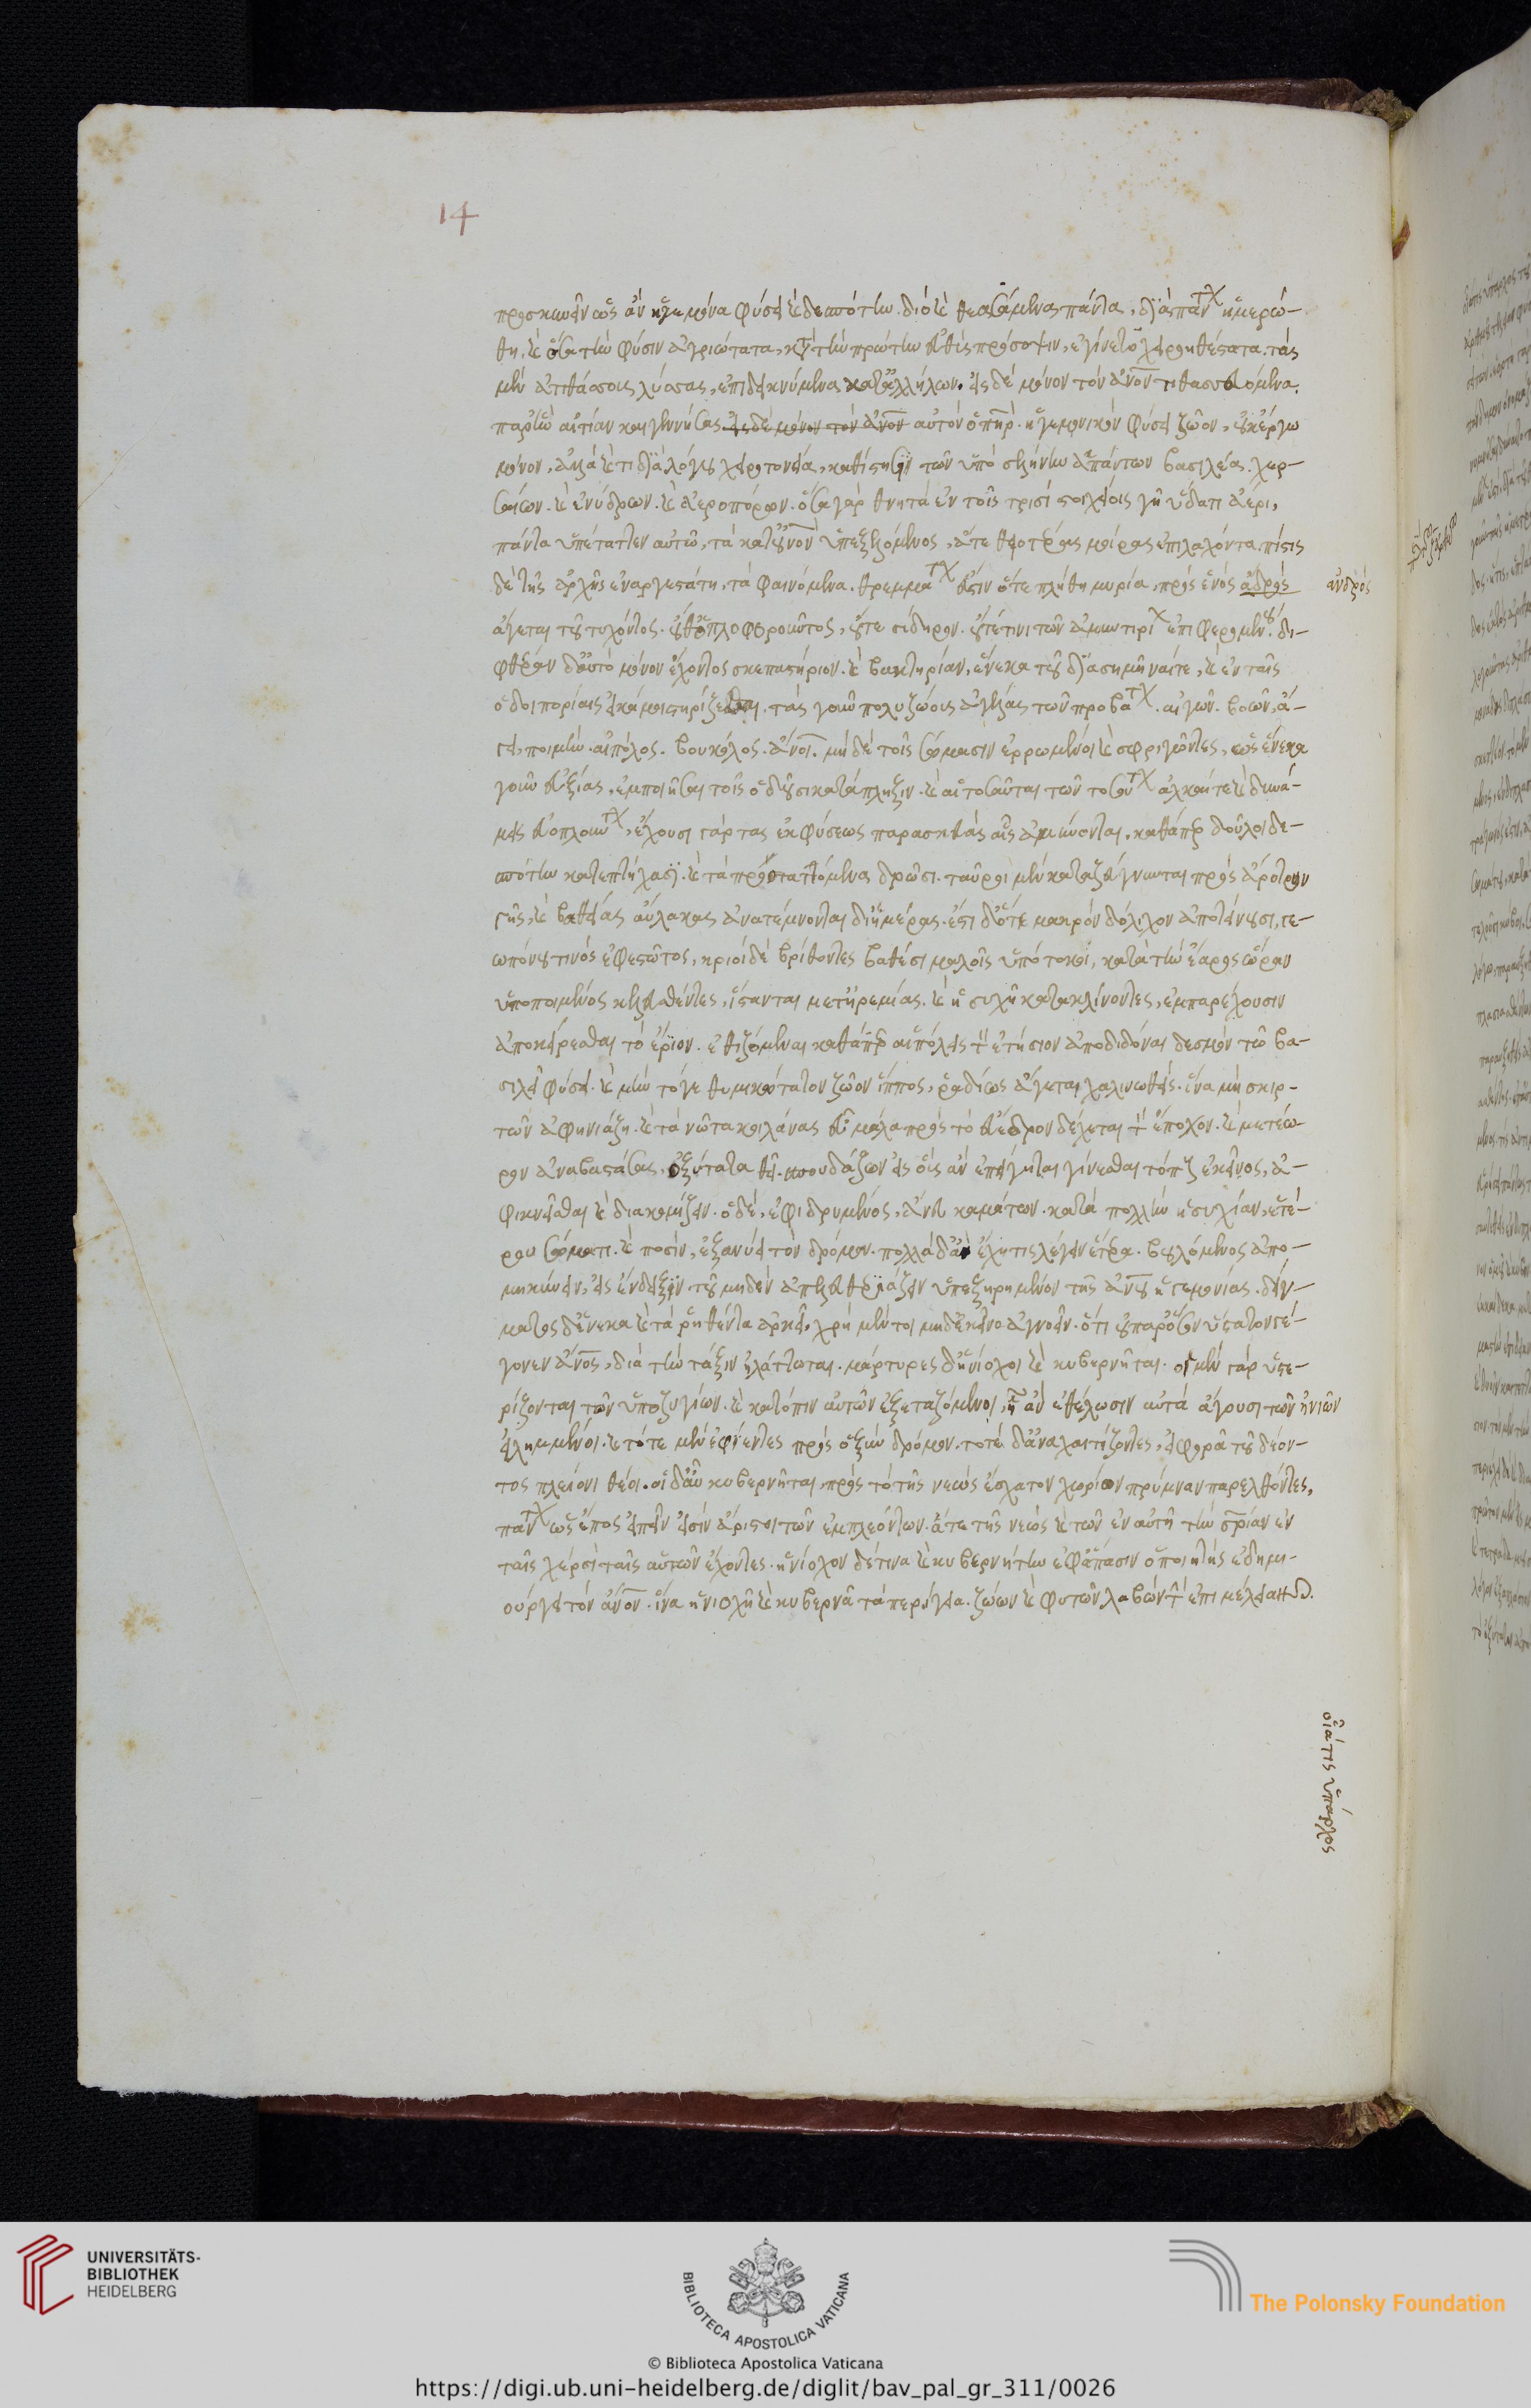 14
προσκυνεῖν ὡς ἂν ἡγεμόνα φύσει καὶ δεσπότην. διὸ καὶ θεασάμενα πάντα, διὰ πάντων ἡμερώ-
θη. καὶ ὅσα τὴν φύσιν ἀγριώτατα, κατὰ τὴν πρώτην εὐθὺς πρόσοψιν, ἐγίνετο χειροηθέστατα. τὰς
μὲν ἀτιθάσσους λύσσας, ἐπιδεικνύμενα κατ' ἀλλήλων. εἰς δὲ μόνον τὸν ἄνον τιθασευόμενα.
παρ' ἣν αἰτίαν καὶ γεννήσας αὐτὸν ὁ πηρ. ἡγεμονικὸν φύσει ζῶον, οὐκ ἔργω
μόνον, ἀλλὰ καὶ τῆ διὰ λόγου χειροτονία, καθίστησι τῶν ὑπὸ σελήνην ἁπάντων βασιλέα. χερ-
σαίων. καὶ ἐνύδρων. καὶ ἀεροπόρων. ὅσα γὰρ θνητὰ ἐν τοῖς τρισὶ στοιχείοις γῆ ὕδατι ἀέρι,
πάντα ὑπέταττεν αὐτῶ, τὰ κατ' οὐνον ὑπεξελόμενος, ἅτε θειοτέρας μοίρας ἐπιλαχόντα. πίστις
δὲ τῆς ἀρχῆς ἐναργεστάτη, τὰ φαινόμενα. θρεμμάτων ἔστιν ὅτε πλήθη μυρία, πρὸς ἑνὸς ἀδρὸς
ἀνδρὸς
ἄγεται τοῦ τυχόντος. οὔθ' ὁπλοφοροῦντος, οὔτε σίδηρον. οὔτέ τι τῶν ἀμυντηρίων ἐπιφερομένου. δι-
φθέραν δ' αὐτὸ μόνον ἔχοντος σκεπαστήριον. καὶ βακτηρίαν, ἕνεκα τοῦ διασημῆναί τε, καὶ ἐν ταῖς
ὁδοιπορίαις εἰ κάμοι στηρίξεσθαι. τὰς γοῦν πολυζώους ἀγέλας τῶν προβάτων. αἰγῶν. βοῶν, ἄ-
γει, ποιμὴν. αἰπόλος. βουκόλος. ἄνοι. μὴ δὲ τοῖς σώμασιν ἐρρωμένοι καὶ σφριγῶντες, ὡς ἕνεκα
γοῦν εὐεξίας, ἐμποιῆσαι τοῖς ἰδοῦσι κατάπληξιν. καὶ αἱ τοσαῦται τῶν τοσούτων ἀλκαί τε καὶ δυνά-
μεις εὐοπλούντων, ἔχουσι γὰρ τὰς ἐκ φύσεως παρασκευὰς αἷς ἀμύνονται, καθάπερ δοῦλοι δε-
σπότην κατεπτήχασι. καὶ τὰ προσταττόμενα δρῶσι. ταῦροι μὲν καταζεύγνυνται πρὸς ἄροτρον
γῆς, καὶ βαθείας αὔλακας ἀνατέμνοντες δι' ἡμέρας. ἔστι δ' ὅτε μακρὸν δόλιχον ἀποτείνουσι, γε-
ωπόνου τινὸς ἐφεστῶτος, κριοὶ δὲ βρίθοντες βαθέσι μαλοῖς ὑπότοκοι, κατὰ τὴν ἔαρος ὥραν
ὑπὸ ποιμένος κελευσθέντες, ἵστανται μετ' ἠρεμίας. καὶ ἡσυχῆ κατακλίνοντες, ἐμπαρέχουσιν
ἀποκείρεσθαι τὸ ἔριον. ἐθιζόμεναι καθάπερ αἱ πόλεις τὸν ἐτήσιον ἀποδιδόναι δεσμὸν τῶ βα-
σιλεῖ φύσει. καὶ μὴν τό γε θυμικώτατον ζῶον ἵππος, ῥαδίως ἄγεται χαλινωθεὶς. ἵνα μὴ σκιρ-
τῶν ἀφηνιάζη. καὶ τὰ νῶτα κοιλάνας εὖ μάλα πρὸς τὸ εὔεδρον δέχεται τὸν ἔποχον. καὶ μετέω-
ρον ἀναβαστάσας, ὀξύτατα θεῖ. σπουδάζων εἰς οὓς ἂν ἐπείγηται γίνεσθαι τόπους ἐκεῖνος, ἀ-
φικνεῖσθαι καὶ διακομίζειν. ὁ δὲ, ἐφιδρυμένος, ἄνευ καμάτων. κατὰ πολλὴν ἡσυχίαν, ἑτέ-
ρου σώματι. καὶ ποσὶν, ἐξανύει τὸν δρόμον. πολλὰ δ' ἂν ἔχη τις λέγειν ἕτερα. βουλόμενος ἀπο-
μηκύνειν, εἰς ἔνδειξιν τοῦ μηδὲν ἀπελευθεριάζειν ὑπεξηρημένον τῆς ἀνου ἡγεμονίας. δείγ-
ματος δ' ἕνεκα καὶ τὰ ῥηθέντα ἀρκεῖ. χρὴ μέντοι μηδ' ἐκεῖνο ἀγνοεῖν. ὅτι οὐ παρ' ὅσον ὕστατον γέ-
γονεν ἄνος, διὰ τὴν τάξιν ἠλάττωται. μάρτυρες δ' ἡνίοχοι καὶ κυβερνῆται. οἱ μὲν γὰρ ὑστε-
ρίζοντες τῶν ὑποζυγίων. καὶ κατόπιν αὐτῶν ἐξεταζόμενοι, ᾗ ἂν ἐθέλωσιν αὐτὰ ἄγουσι τῶν ἡνιῶν
εἰλημμένοι. καὶ τότε μὲν ἐφιέντες πρὸς ὀξὺν δρόμον. τοτὲ δ' ἀναχαιτίζοντες, εἰ φορᾶ τοῦ δέον-
τος πλείονι θέοι. οἱ δ' αὖ κυβερνῆται, πρὸς τὸ τῆς νεὼς ἔσχατον χωρίον πρύμναν παρελθόντες,
πάντων ὡς ἔπος εἰπεῖν εἰσὶν ἄριστοι τῶν ἐμπλεόντων. ἅτε τῆς νεὼς καὶ τῶν ἐν αὐτῆ τὴν σρίαν ἐν
ταῖς χερσὶ ταῖς αὑτῶν ἔχοντες. ἡνίοχον δή τινα καὶ κυβερνήτην ἐφ' ἅπασιν ὁ ποιητὴς ἐδημι-
ούργει τὸν ἄνον. ἵνα ἡνιοχῆ καὶ κυβερνᾶ τὰ περίγεια. ζώων καὶ φυτῶν λαβὼν τὴν ἐπιμέλειαν.
οἷά τις ὕπαρχος
UNIVERSITÄTS-
BIBLIOTHEK
HEIDELBERG
BIBLIOTECA APOSTOLICA VATICANA
The Polonsky Foundation
© Biblioteca Apostolica Vaticana
https://digi.ub.uni-heidelberg.de/diglit/bav_pal_gr_311/0026